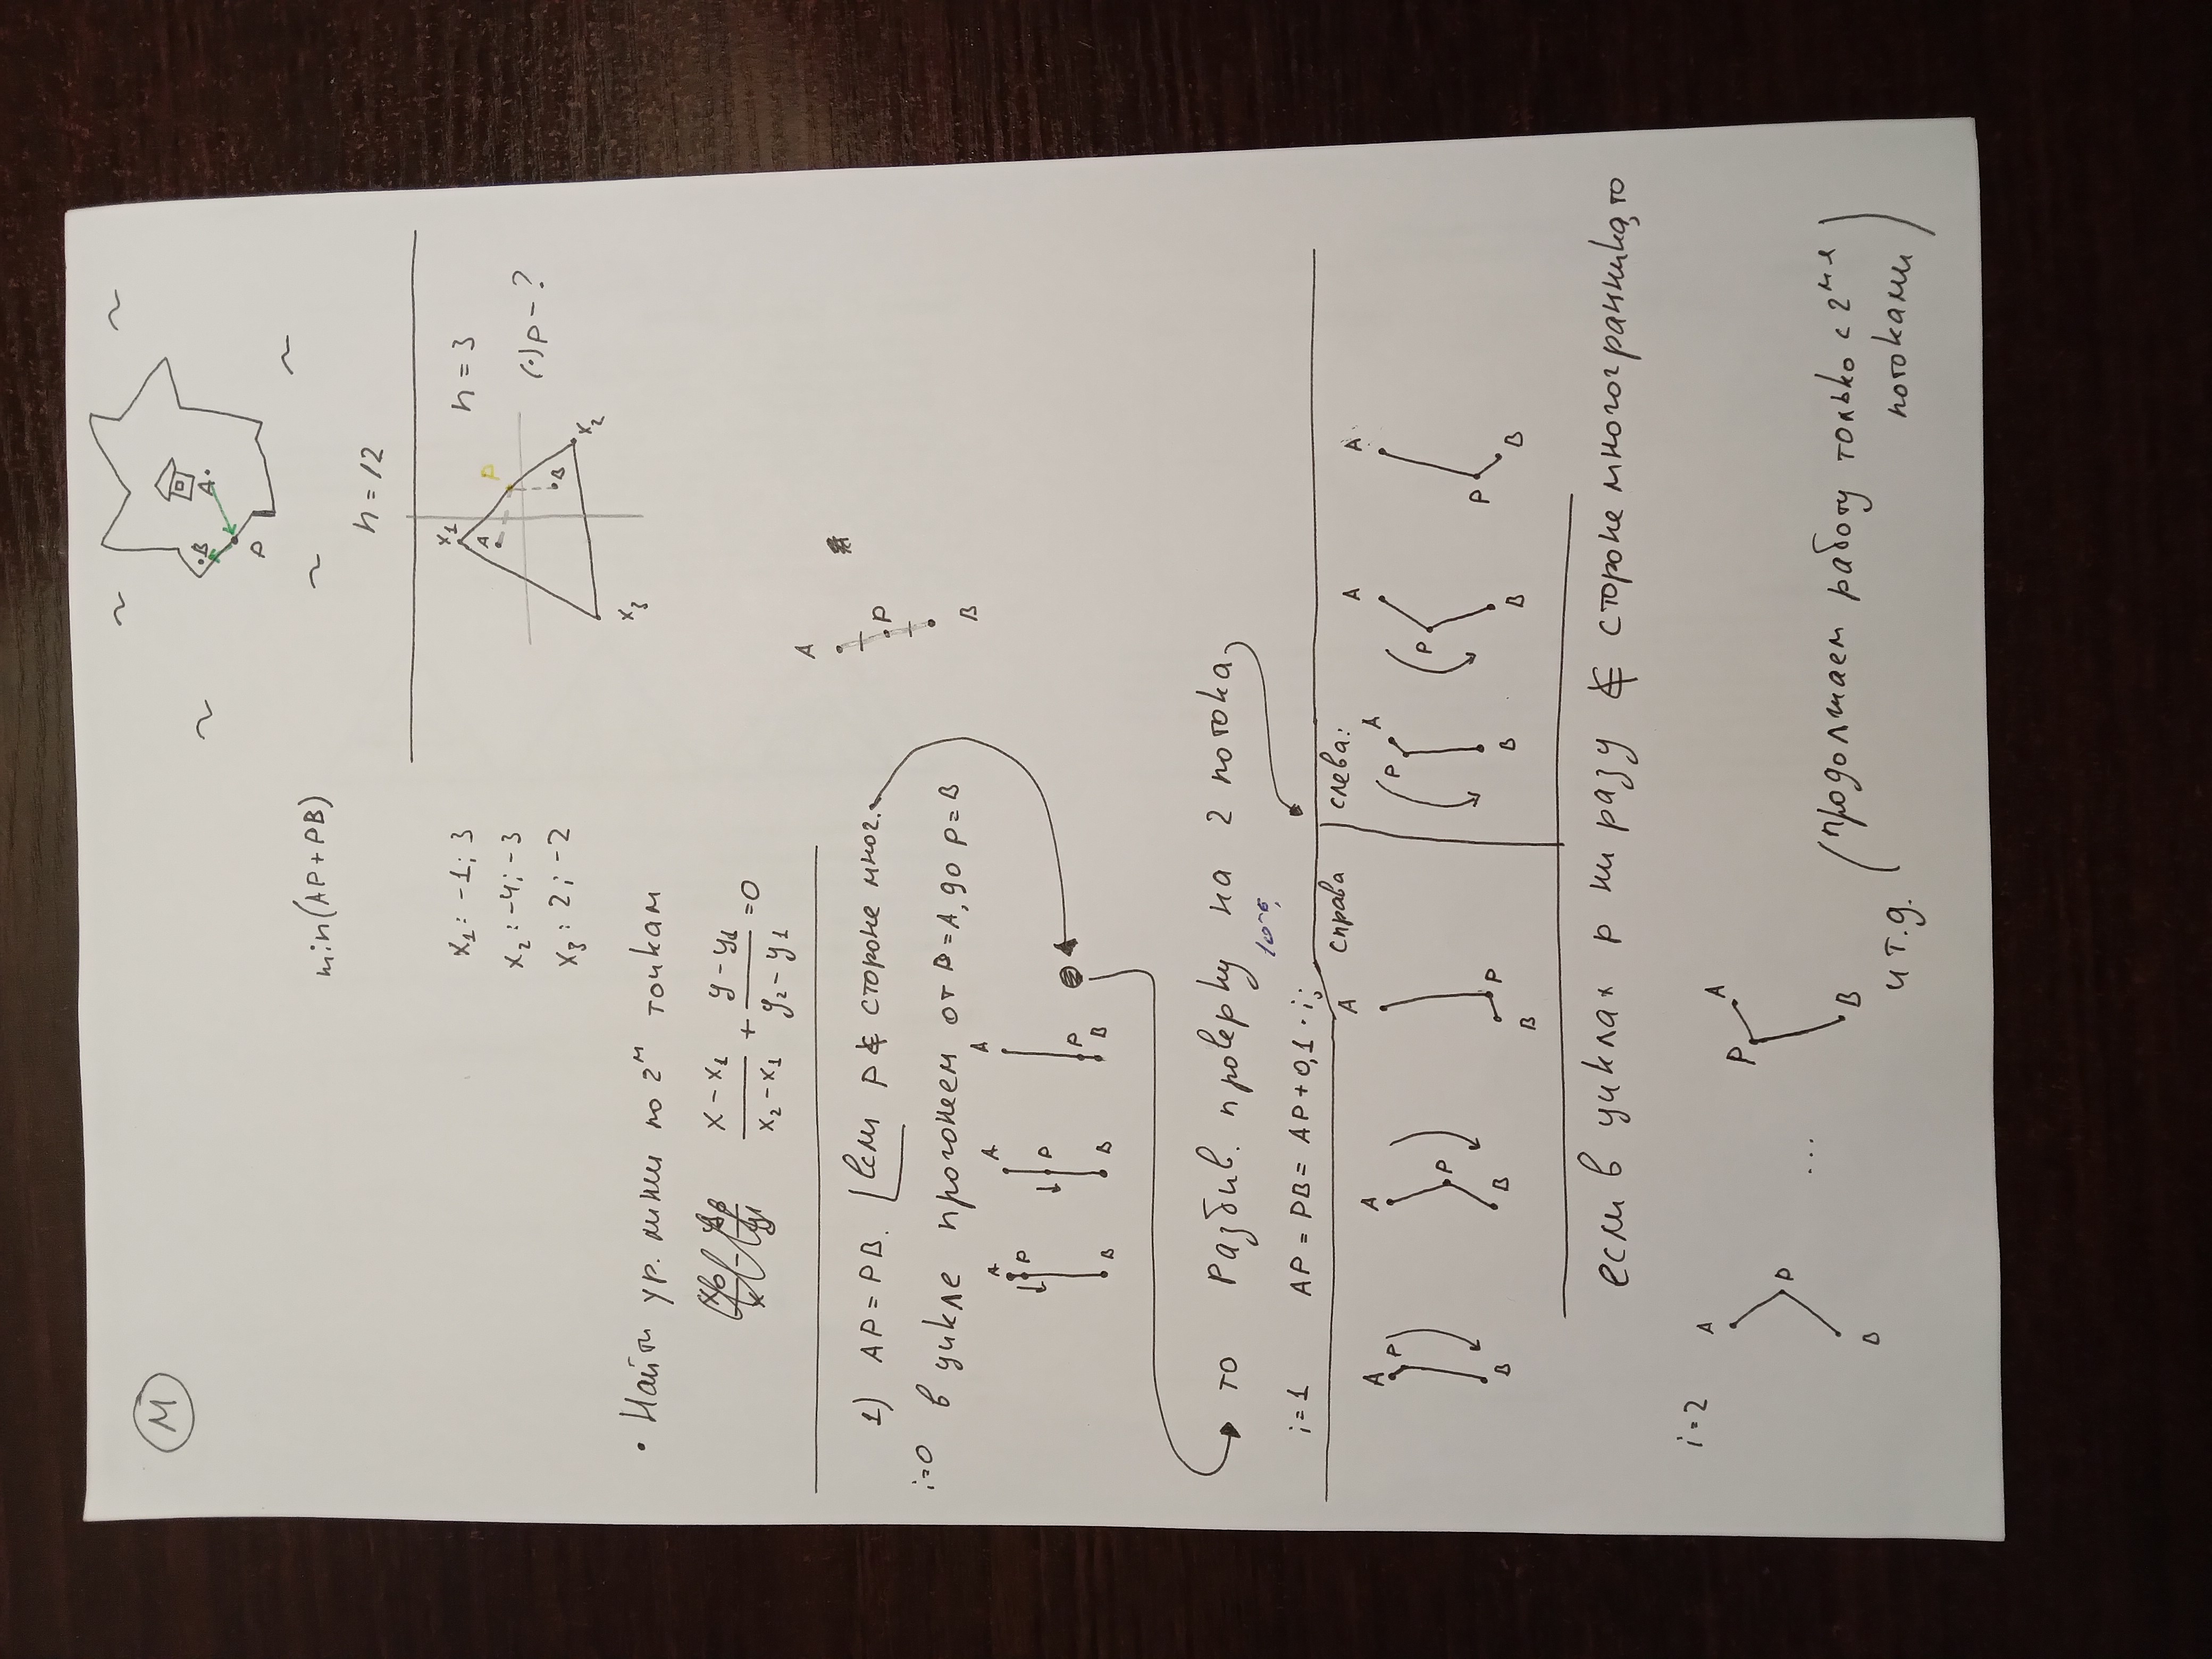 М
B
A
P
min(AP+PB)
n = 12
x₁: -1; 3
x₂: -4; -3
x₃: 2; -2
x₁
A
P
B
x₂
x₃
n = 3
(·)P - ?
• Найти ур. линии по 2ᵐ точкам
(x - x₁)/(x₂ - x₁) + (y - y₁)/(y₂ - y₁) = 0
A
P
B
1) AP = PB. если P ∉ стороне мног.
i=0 в цикле прогонеем от B = A, до P = B
A A A
P P P
B B B
то Разбив. проверку на 2 потока
10⁻⁶,
i=1 AP = PB = AP + 0,1 · i;
справа слева:
A A A A A A
P P P P P P
B B B B B B
если в циклах P ни разу ∉ стороне многогранника, то
i=2
A A
P P
...
B B
и т.д.
(продолжаем работу только с 2ᵐя
потоками)